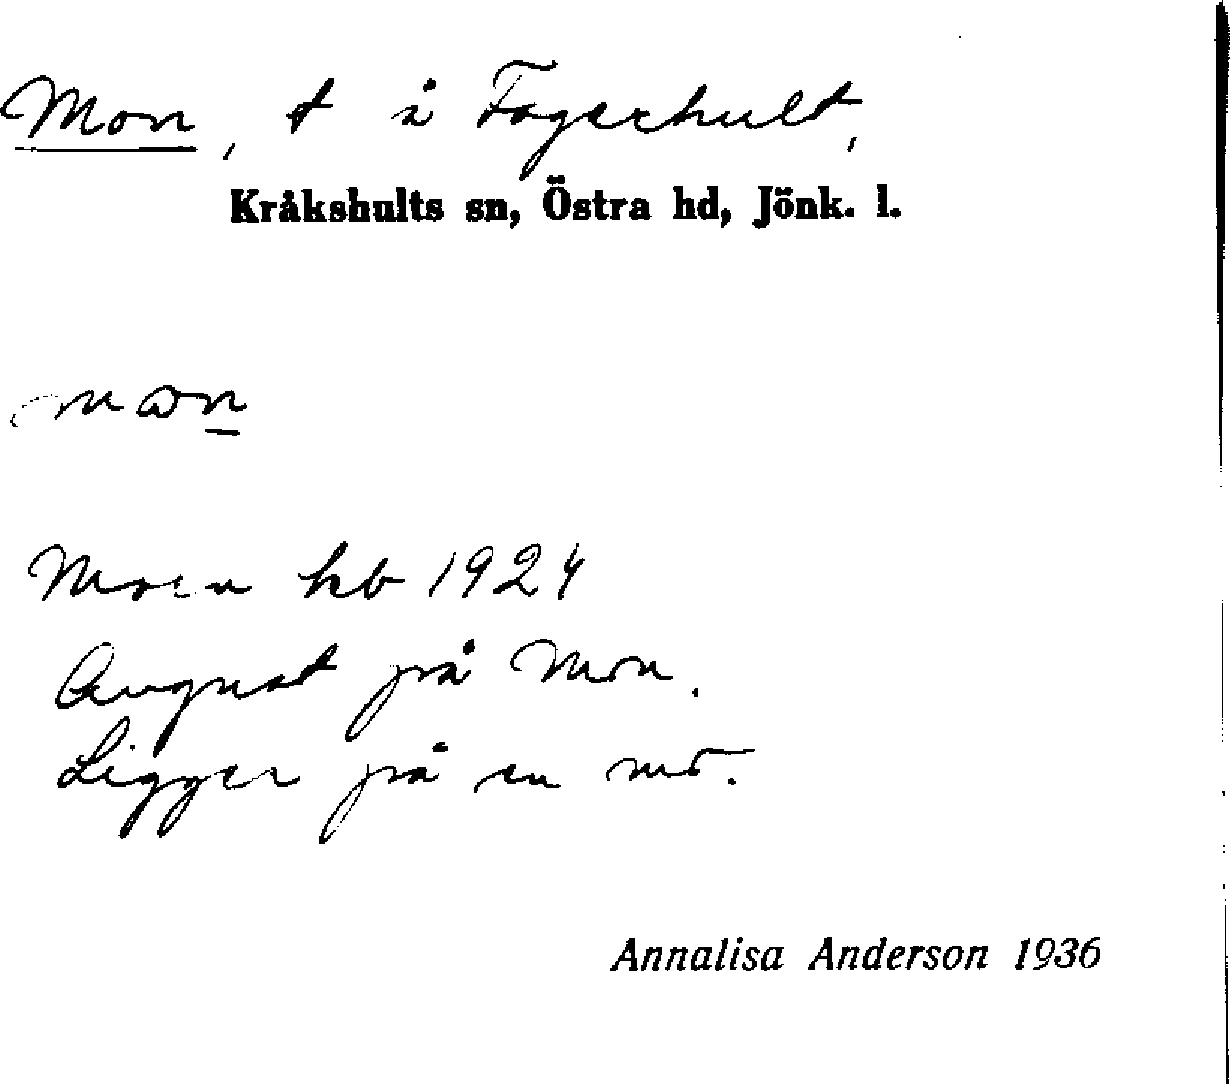 Mon, t å Fagerhult,
Kråkshults sn, Östra hd, Jönk. l.
Moen hb 1924
August på Mon.
Ligger på en mo.
Annalisa Anderson 1936